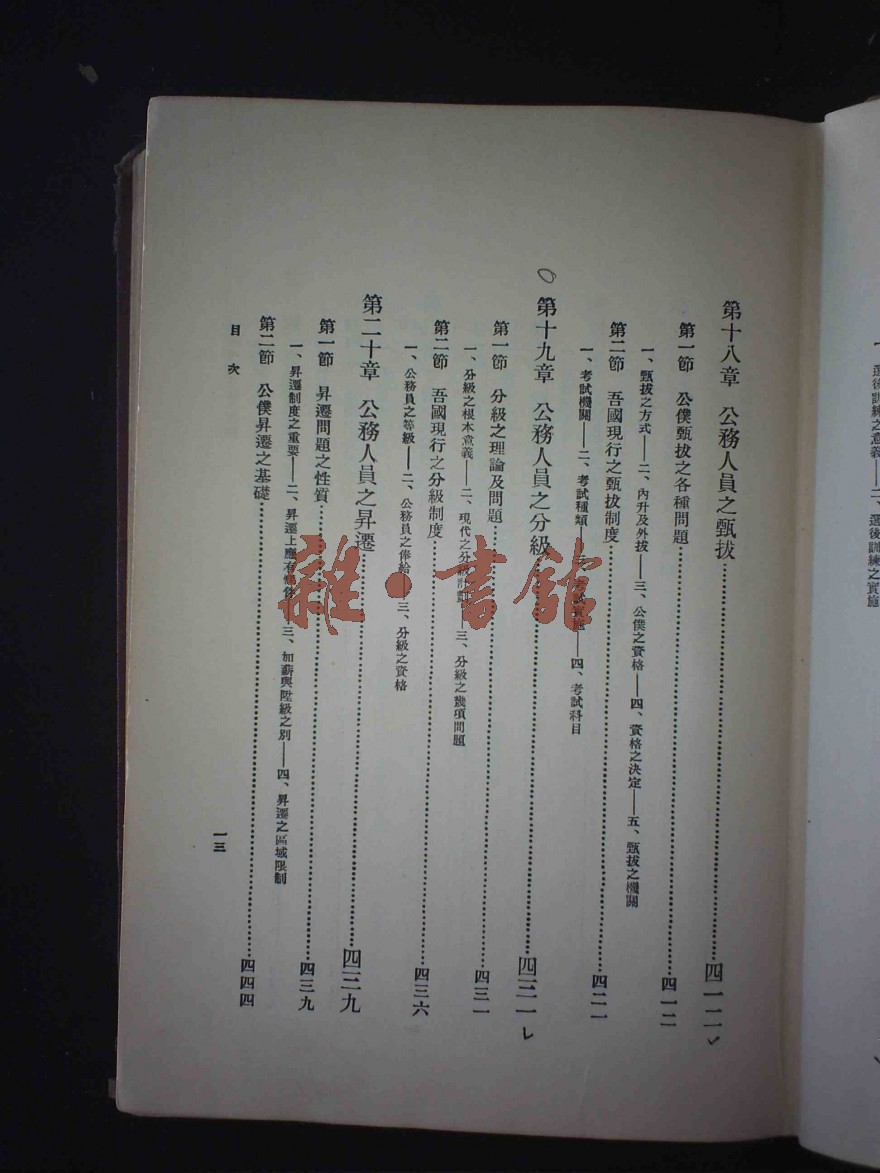 第十八章　公務人員之甄拔……四一二
第一節　公僕甄拔之各種問題……四一二
一、甄拔之方式——二、內升及外拔——三、公僕之資格——四、資格之決定——五、甄拔之機關
第二節　吾國現行之甄拔制度……四二一
一、考試機關——二、考試種類——三、考試實施——四、考試科目
第十九章　公務人員之分級……四三一
第一節　分級之理論及問題……四三一
一、分級之根本意義——二、現代之分級計劃——三、分級之幾項問題
第二節　吾國現行之分級制度……四三六
一、公務員之等級——二、公務員之俸給——三、分級之資格
第二十章　公務人員之昇遷……四三九
第一節　昇遷問題之性質……四三九
一、昇遷制度之重要——二、昇遷上應有條件——三、加薪與陞級之別——四、昇遷之區域限制
第二節　公僕昇遷之基礎……四四四
目次
一三
雜·書館
一、選後訓練之意義——二、選後訓練之實施